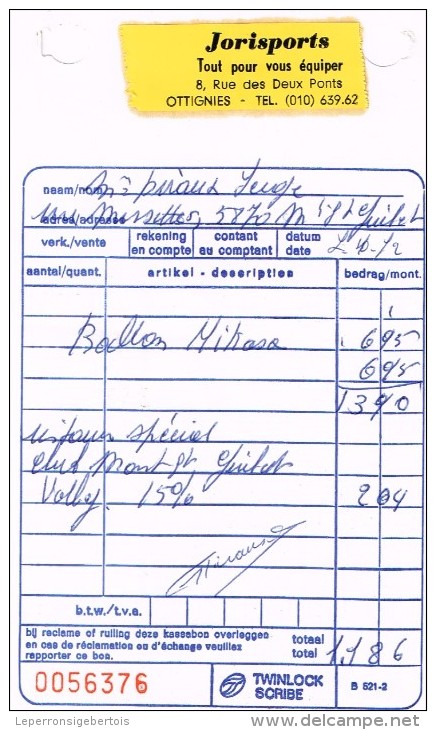 Jorisports
Tout pour vous équiper
8, Rue des Deux Ponts
OTTIGNIES - TEL. (010) 639.62
naam/nom
adres/adresse 5870 Mt St Guibert
verk./vente rekening en compte contant au comptant datum date
aantal/quant. artikel - description bedrag/mont.
Ballon Mikasa 695
695
1390
spécial
club Mont St Guibert
Volley 15% 204
b.t.w./t.v.a.
bij reclame of ruiling deze kassabon overleggen
en cas de réclamation ou d'échange veuillez
rapporter ce bon.
totaal
total 1.186
0056376 TWINLOCK SCRIBE B 521-2
Leperronsigebertois
www.delcampe.net